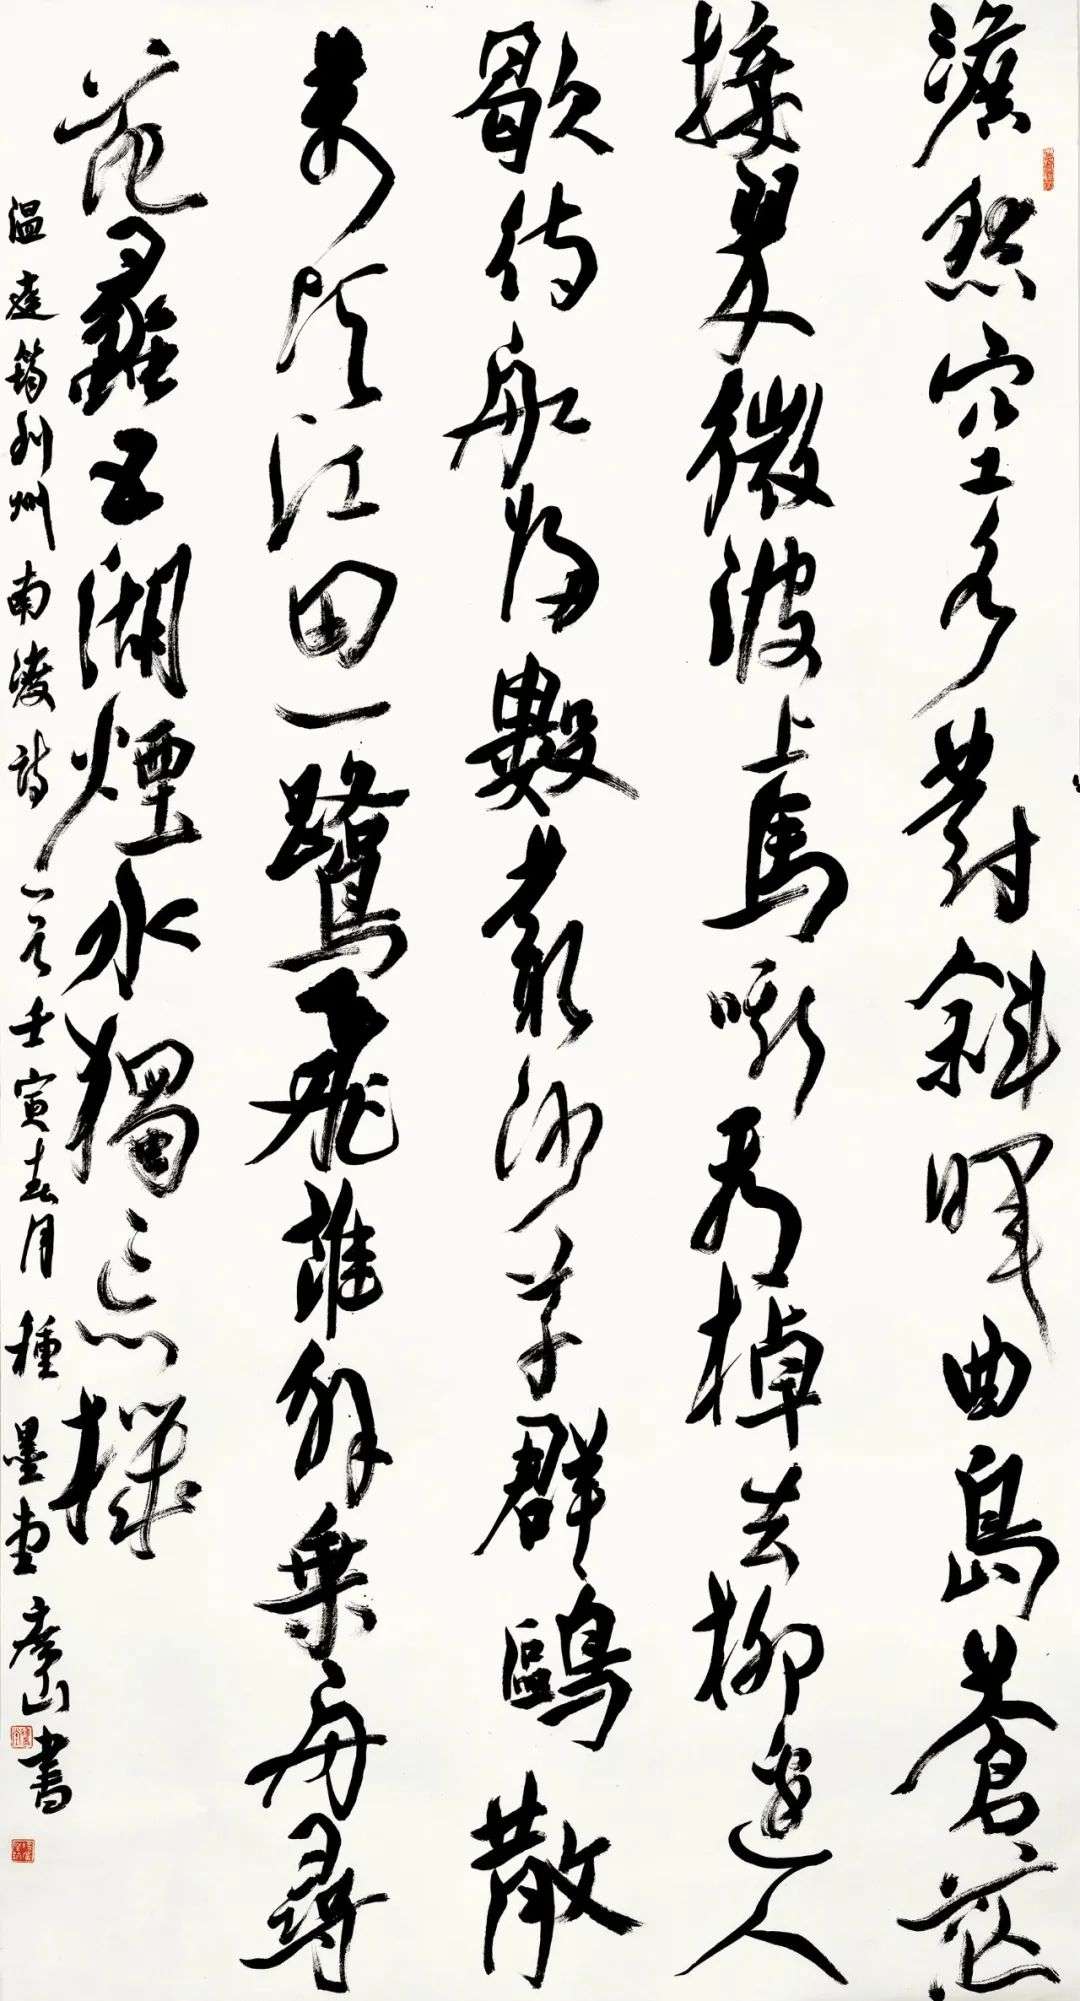 澹然空水對斜暉曲島蒼茫
接翠微波上馬嘶看棹去柳邊人
歇待船歸數叢沙草群鷗散
萬頃江田一鷺飛誰解乘舟尋
范蠡五湖煙水獨忘機
温庭筠利州南渡詩一首壬寅春月種墨堂山書